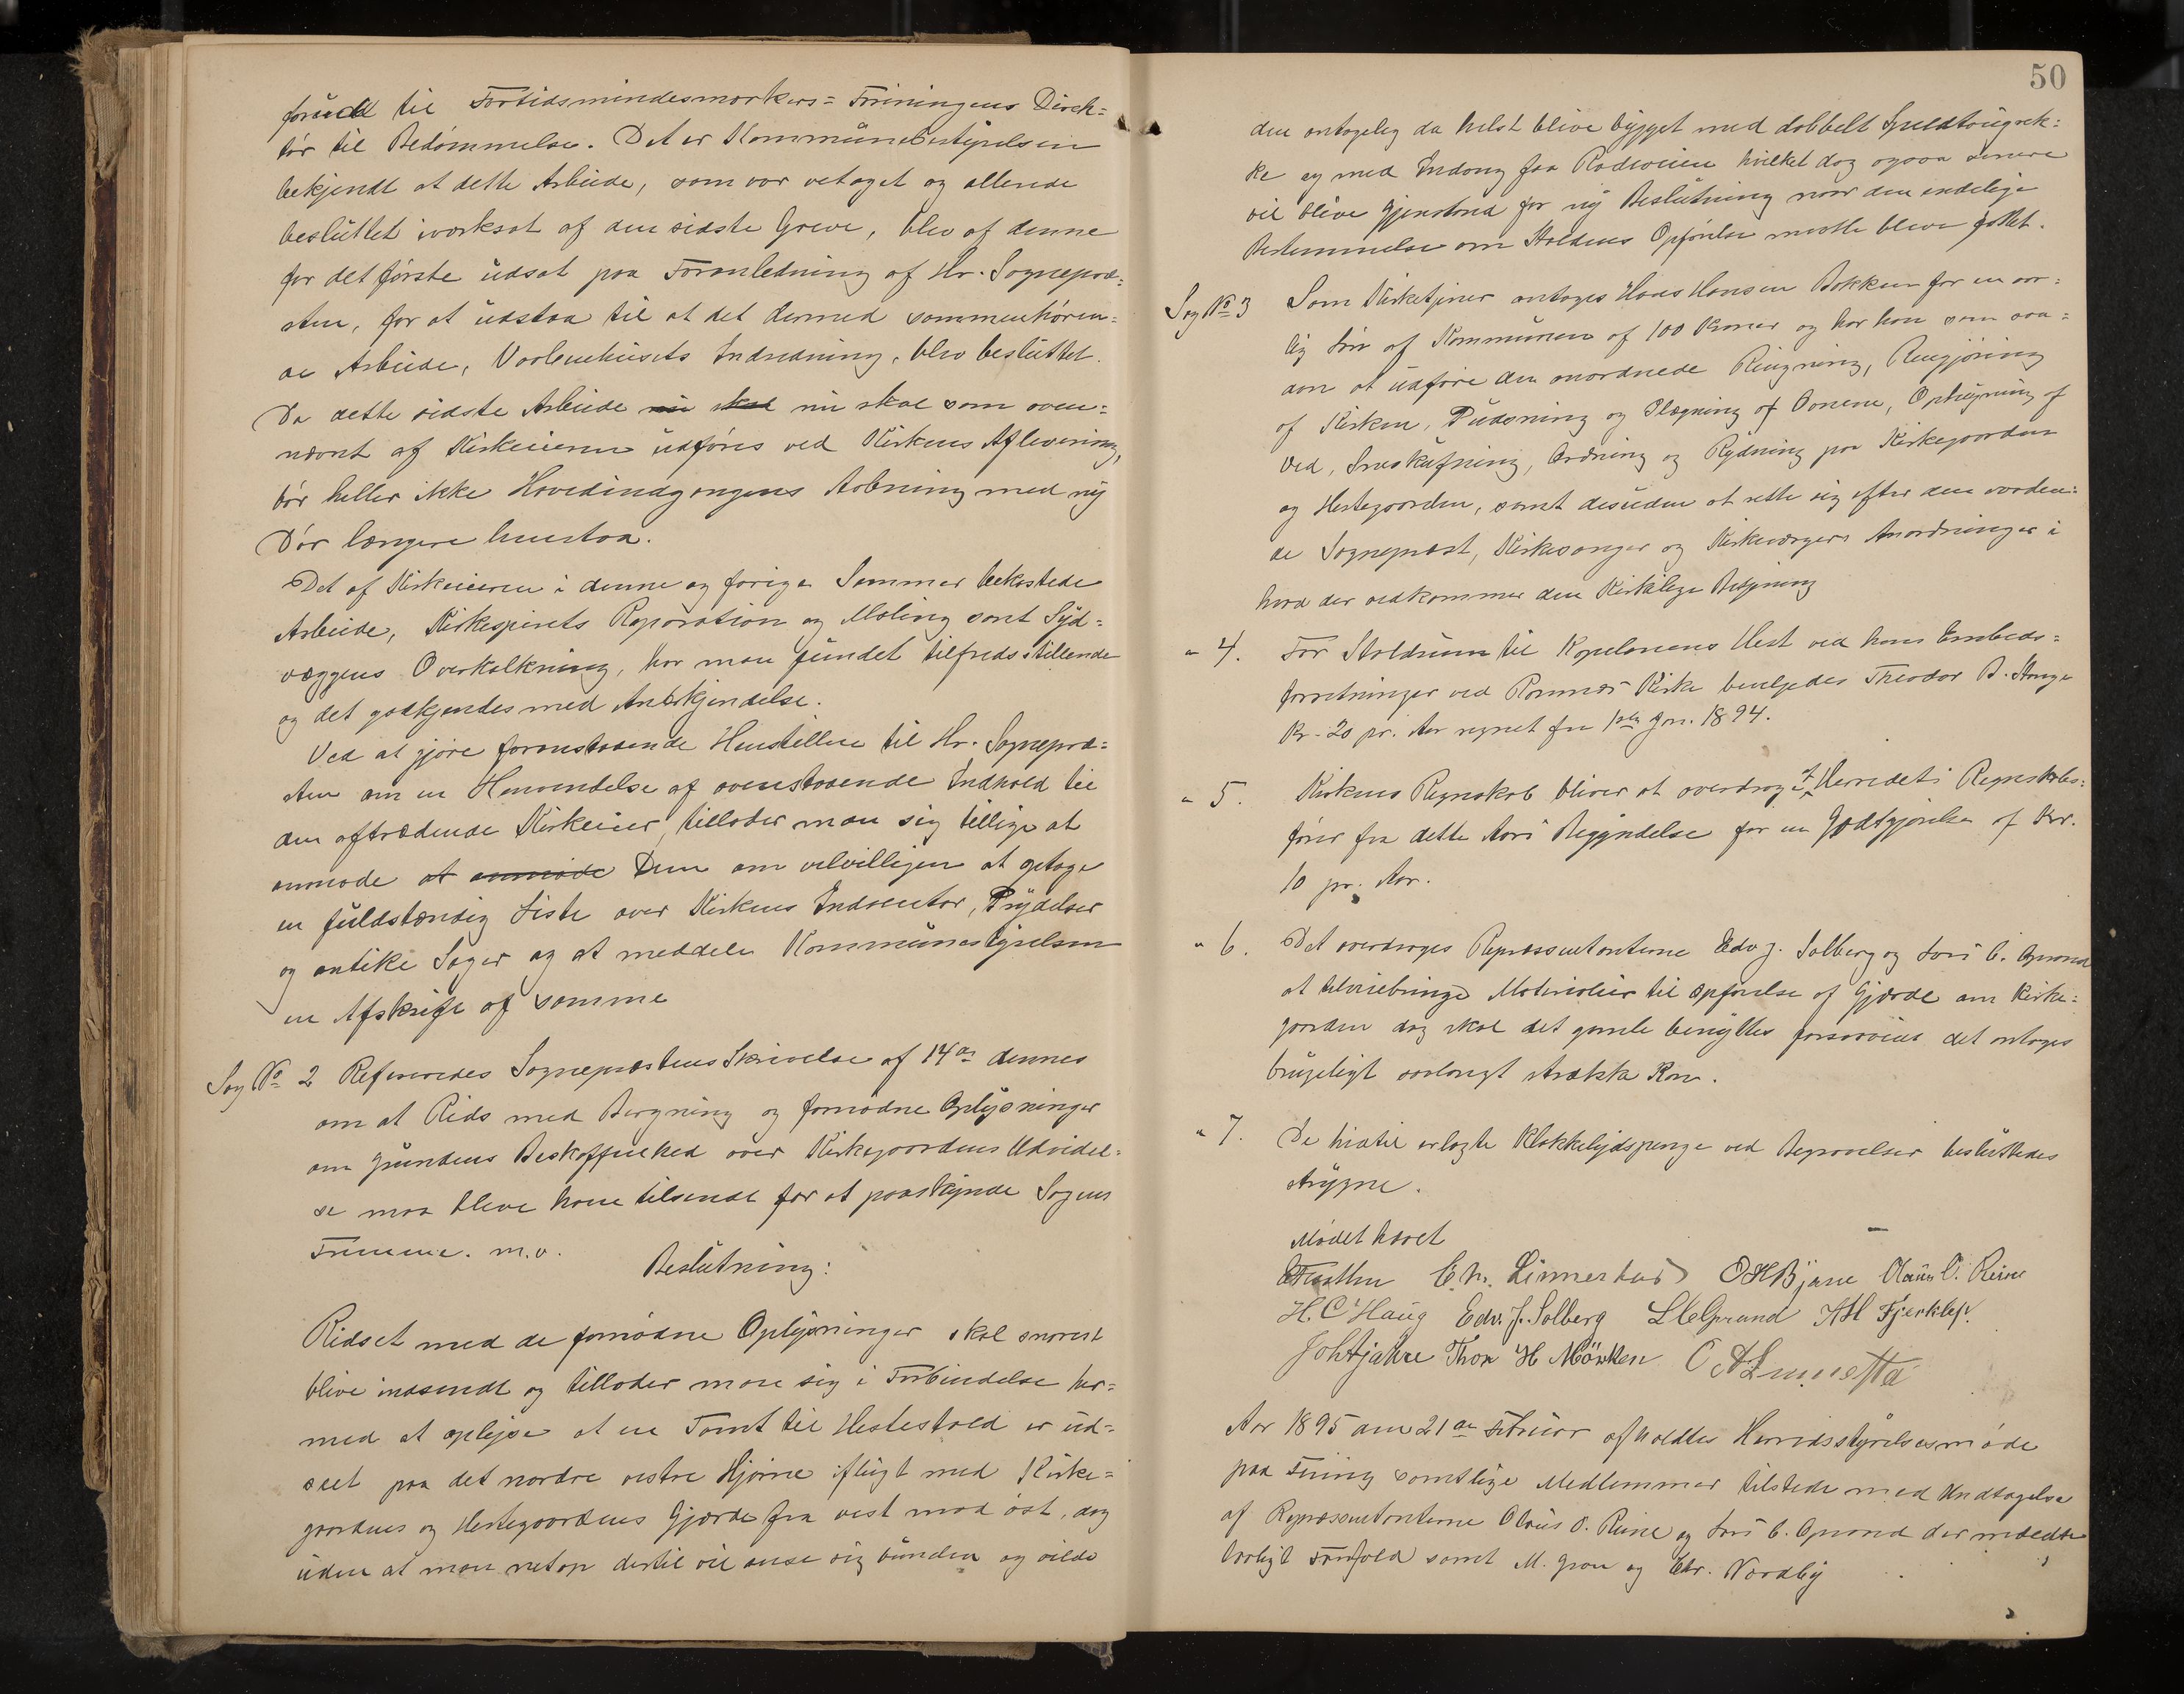 forudt til Fortidsmindesmærkers= Foreningens Direk=
tør til Bedømmelse. Det er Kommunebestyrelsen
bekjendt at dette Arbeide, som var vetaget og allerede
besluttet iværksat af den sidste Greve, blev af denne
for det første udsat paa Foranledning af Hr. Sognepræ=
sten, for at udstaa til at det dermed sammenhøren=
de Arbeide, Vaabenhusets Indredning, blev besluttet.
Da dette sidste Arbeide nu skal nu skal som oven=
nævnt af Kirkeieren udføres ved Kirkens Aflevering,
bør heller ikke Hovedindgangens Aabning med ny
Dør længere henstaa.
Det af Kirkeieren i denne og forige Sommer bekostede
Arbeide, Kirkespirets Reparation og Maling samt Syd=
væggens Overkalkning, har man fundet tilfredsstillende
og det godkjendes med Anerkjendelse.
Ved at gjøre foranstaaende Henstillen til Hr. Sognepræ=
sten om en Henvendelse af ovenstaaende Indhold til
den aftrædende Kirkeeier, tillader man sig tillige at
anmode at anmode Dem om velvilligen at optage
en fuldstændig Liste over Kirkens Indventar, Prydelser
og antike Sager og at meddele Kommunestyrelsen
en Afskrift af samme
Sag No 2 Refereredes Sogneprestens Skrivelse af 14de dennes
om at Rids med Beregning og fornødne Oplysninger
om grundens Beskaffenhed over Kirkegaardens Udvidel=
se maa bleve ham tilsendt for at paaskynde Sagens
Fremme. m.v.
Beslutning:
Ridset med de fornødne Oplysninger skal snarest
blive indsendt og tillader man sig i Forbindelse her=
med at oplyse at en Tomt til Hestestald er ud=
seet paa det nordre vestre Hjørne iflugt med Kirke=
gaardens og Hestegaardens Gjærde fra vest mod øst, dog
uden at man netop dertil vil anse sig bunden og vilde
50
den antagelig da helst blive bygget med dobbelt Spildtougræk=
ke og med Indgang fra Rodeveien hvilket dog ogsaa senere
vil blive Gjenstand for ny Beslutning naar den endelige
Bestemmelse om Staldens Opførelse maatte bleve fattet.
Sag No 3 Som Kirketjener antages Hans Hansen Bakken for en aar=
lig Løn af Kommunen af 100 Kroner og har han som saa=
dan at udføre den anordnede Ringning, Rengjøring
af Kirken, Pudsning og Lægning af Ovnene, Ophugning af
Ved, Sneskufning, Ordning og Rydning paa Kirkegaarden
og Hestegaarden, samt desuden at rette sig efter den vorden=
de Sogneprest, Kirkesanger og Kirkeværgers Anordninger i
hvad der vedkommer den Kirkelige Betjening
" 4. For Staldrum til Kapelanens Hest ved hans Embeds=
forretninger ved Ramnæs Kirke bevilgedes Theodor B. Stange
Kr. 20 pr. Aar regnet fra 1ste Jan. 1894.
" 5. Kirkens Regnskab bliver at overdrage af Herredets Regnskabs=
fører fra dette Aars Begyndelse for en Godtgjørelse af Kr.
10 pr. Aar.
" 6. Det overdroges Repræsentanterne Edv. J. Solberg og Lars C. Gprand
at tilveiebringe Materialier til opførelse af Gjærde om Kirke=
gaarden dog skal det gamle benyttes forsaavidt det antages
brugeligt saalangt strække Kan.
" 7. De hidtil erlagte Klokkelydspenge ved Begravelser besluttedes
strygne.
Mødet hævet
Chr. Linnestad OHBjane Olaus O. Reine
H. C Haug Edv. J. Solberg LCGprand AH Fjerkløf.
Thor H Mörken
Aar 1895 den 21de Februar afholdtes Herredsstyrelsesmøde
paa Fining samtlige Medlemmer tilstede med Undtagelse
af Repræsentanterne Olaus O. Reine og Lars C. Gprand der meldte
lovligt Forfald samt M. Gran og Chr. Nordby